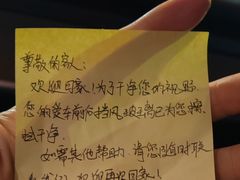 尊敬的家人:
欢迎回家!为了干净您的视野
您的爱车前份挡风玻璃已为您擦
拭干净。
如需其他帮助,请您随时联
欢迎再次回家!